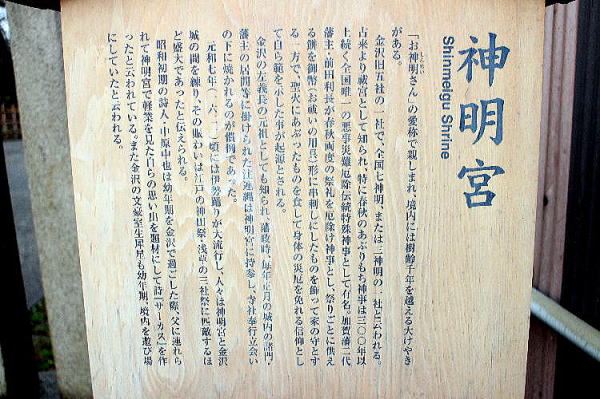 神明宮
Shinmeigu Shrine
「お神明さん」の愛称で親しまれ、境内には樹齢千年を越える大けやき
がある。
金沢旧五社の一社で、全国七神明、または三神明の一社と云われる。
古来より祓宮として知られ、特に春秋のあぶりもち神事は三〇〇年以
上続く全国唯一の悪事災難厄除伝統特殊神事として有名。加賀藩二代
藩主・前田利長が春秋両度の祭礼を厄除け神事とし、祭りごとに供え
る餅を御幣(お祓いの用具)形に串刺しにしたものを飾って家の守とす
る一方で、聖火にあぶったものを食して身体の災厄を免れる信仰とし
て自ら範を示した事が起源とされる。
金沢の左義長の元祖としても知られ、藩政時、毎年正月の城内の諸門・
藩主の居間等に掛けられた注連縄は神明宮に持参し、寺社奉行立会い
の下に焼かれるのが慣例であった。
元和七年(一六二一)頃には伊勢踊りが大流行し、人々は神明宮と金沢
城の間を練り、その賑わいは江戸の神田祭・浅草の三社祭に匹敵するほ
ど盛大であったと伝えられる。
昭和初期の詩人・中原中也は幼年期を金沢で過ごした際、父に連れら
れて神明宮で軽業を見た自らの思い出を題材にして詩「サーカス」を作
ったと云われている。また金沢の文豪室生犀星も幼年期、境内を遊び場
にしていたと云われる。